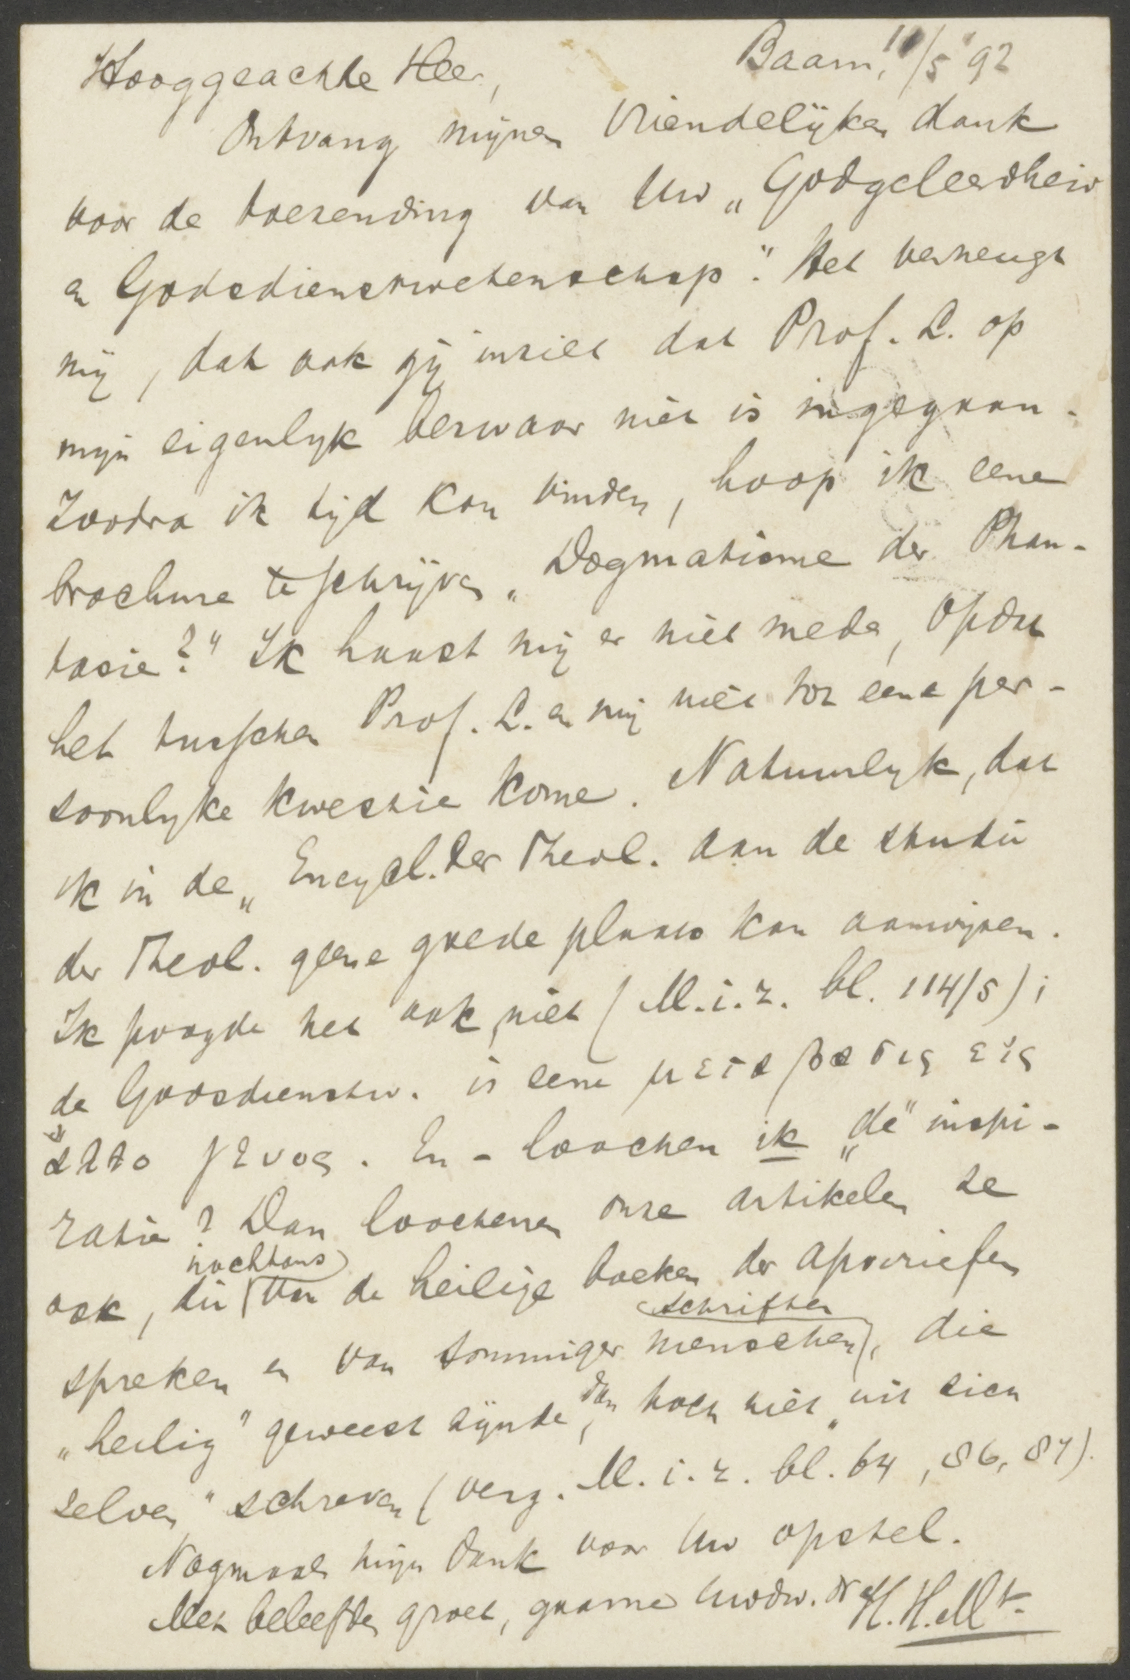 Hooggeachte Heer, Baarn, 11/5 92
Ontvang mijnen vriendelijken dank
voor de toezending van Uw „Godgeleerdheid
en Godsdienstwetenschap". Het verheugt
mij, dat ook gij inziet dat Prof. L. op
mijn eigenlyk bezwaar niet is ingegaan.
Zoodra ik tijd kan vinden, hoop ik eene
brochure te schrijven „Dogmatisme der Phan-
tasie?" Ik haast mij er niet mede, opdat
het tusschen Prof. L. en mij niet tot eene per-
soonlyke kwestie kome. Natuurlyk, dat
ik in de „Encycl. der Theol. aan de studie
der Theol. geene goede plaats kan aanwijzen.
Ik poogde het ook niet (M.i.z. bl. 114/5);
de Godsdienstw. is eene μεταβασις εις
ἀλλο γενος. En – loochen ik „de" inspi-
ratie? Dan loochenen onze artikelen ze
ook, die nochtans van de heilige boeken der apocriefen
spreken en van sommiger menschen schriften, die
„heilig" geweest zijnde, dan toch niet „uit zich
zelven" schreven (verg. M.i.z. bl. 64, 86, 87).
Nogmaals mijn dank voor Uw opstel.
Met beleefden groet, gaarne Uwdw. dr H. H. Mt.